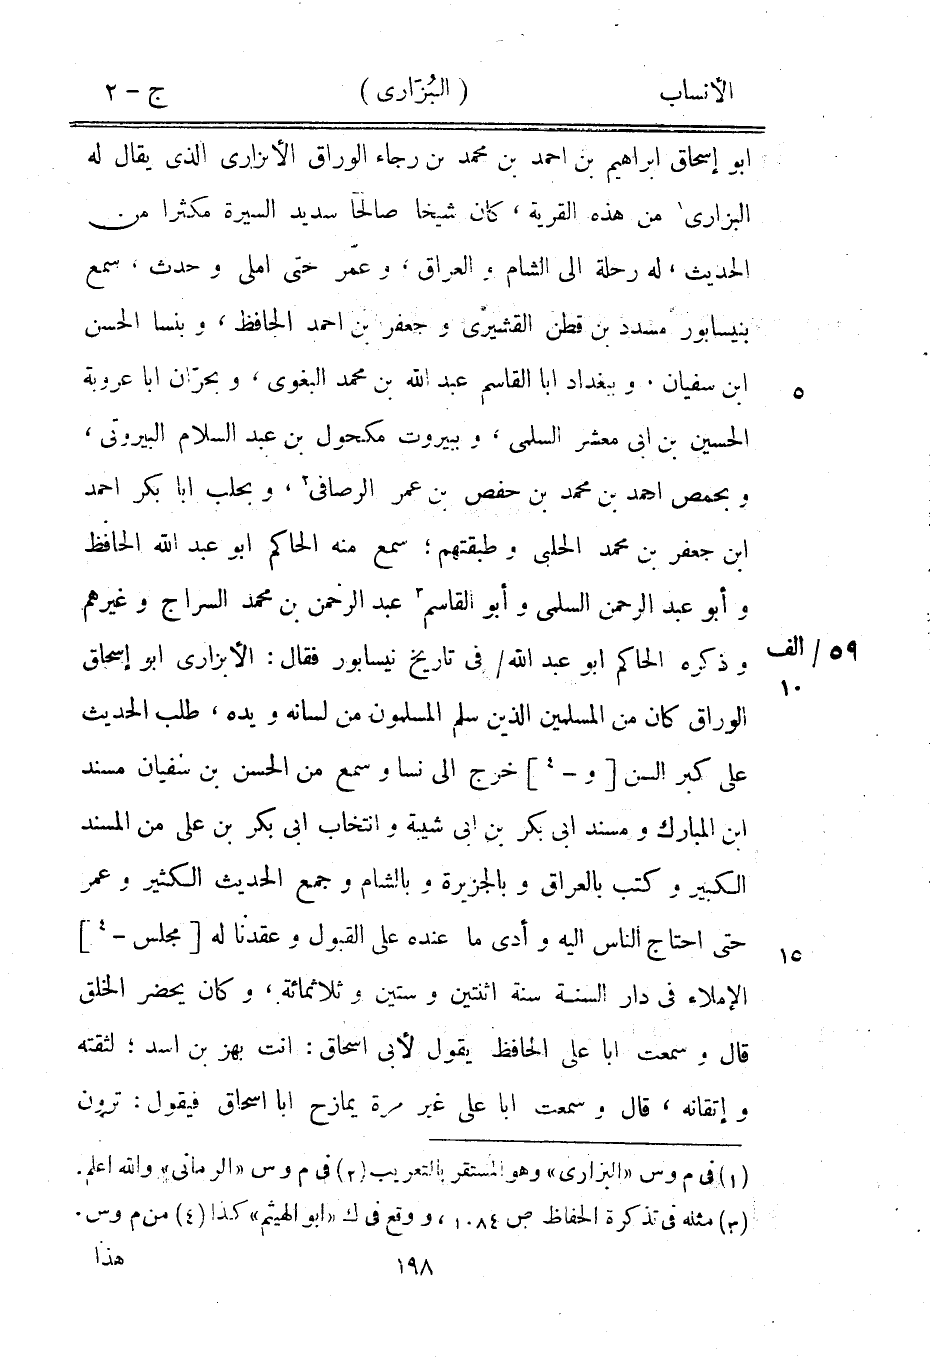 الأنساب ( البُزّارى ) ج – ٢
ابو إسحاق ابراهيم بن احمد بن محمد بن رجاء الوراق الأبزارى الذى يقال له
البزارى١ من هذه القرية ، كان شيخا صالحا سديد السيرة مكثرا من
الحديث ، له رحلة الى الشام و العراق ، و عمّر حتى املى و حدث ، سمع
بنيسابور مسدد بن قطن القشيرى و جعفر بن احمد الحافظ ، و بنسا الحسن
ابن سفيان ٠ و ببغداد ابا القاسم عبد الله بن محمد البغوى ، و بحرّان ابا عروبة ٥
الحسين بن ابى معشر السلمى ، و ببيروت مكحول بن عبد السلام البيروتى ،
و بحمص احمد بن محمد بن حفص بن عمر الرصافى٢ ، و بحلب ابا بكر احمد
ابن جعفر بن محمد الحلبى و طبقتهم ؛ سمع منه الحاكم ابو عبد الله الحافظ
و أبو عبد الرحمن السلمى و أبو القاسم٣ عبد الرحمن بن محمد السراج و غيرهم
و ذكره الحاكم ابو عبد الله / فى تاريخ نيسابور فقال : الأبزارى ابو إسحاق ٥٩ / الف
الوراق كان من المسلمين الذين سلم المسلمون من لسانه و يده ، طلب الحديث ١٠
على كبر السن [ و – ٤ ] خرج الى نسا و سمع من الحسن بن سفيان مسند
ابن المبارك و مسند ابى بكر بن ابى شيبة و انتخاب ابى بكر بن على من المسند
الكبير و كتب بالعراق و بالجزيرة و بالشام و جمع الحديث الكثير و عمر
حتى احتاج الناس اليه و أدى ما عنده على القبول و عقدنا له [ مجلس – ٤ ] ١٥
الإملاء فى دار السنة سنة اثنتين و ستين و ثلاثمائة ، و كان يحضر الخلق
قال و سمعت ابا على الحافظ يقول لأبى اسحاق : انت بهز بن اسد ؛ لثقته
و إتقانه ، قال و سمعت ابا على غير مرة يمازح ابا اسحاق فيقول : ترون
(١) فى م و س «البزارى» وهو المستقر بالتعريب (٢) فى م و س «الرمانى» والله اعلم .
(٣) مثله فى تذكرة الحفاظ ص ١٠٨٤ ، و وقع فى ك «ابو الهيثم» كذا (٤) من م و س .
هذا
١٩٨